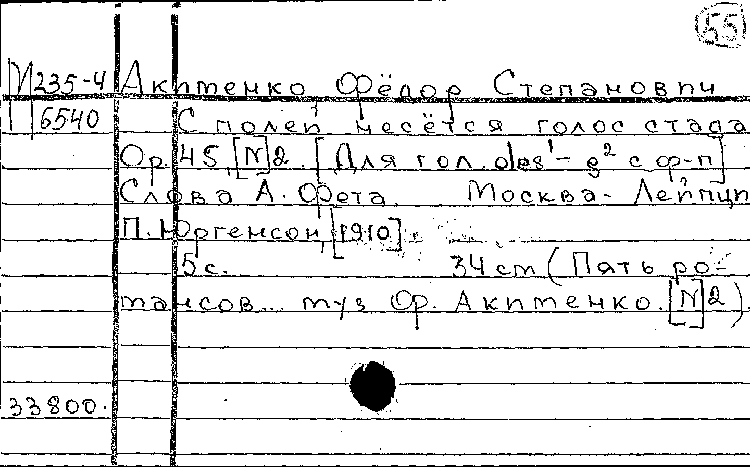 55
М 235-4 Акименко, Фёдор Степанович
П 6540 С полей несётся голос стада
Op. 45, [N] 2. [Для гол. des¹ - g² с ф-п]
Слова А. Фета. Москва - Лейпциг
П. Юргенсон, [1910].
5 с. 34 cm (Пять ро-
мансов... муз Ф. Акименко. [N] 2)
33800.